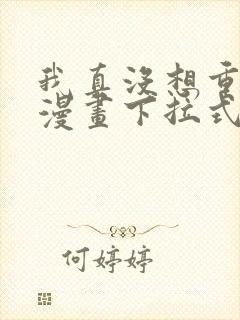 我真沒想重
漫畫下拉式
何婷婷